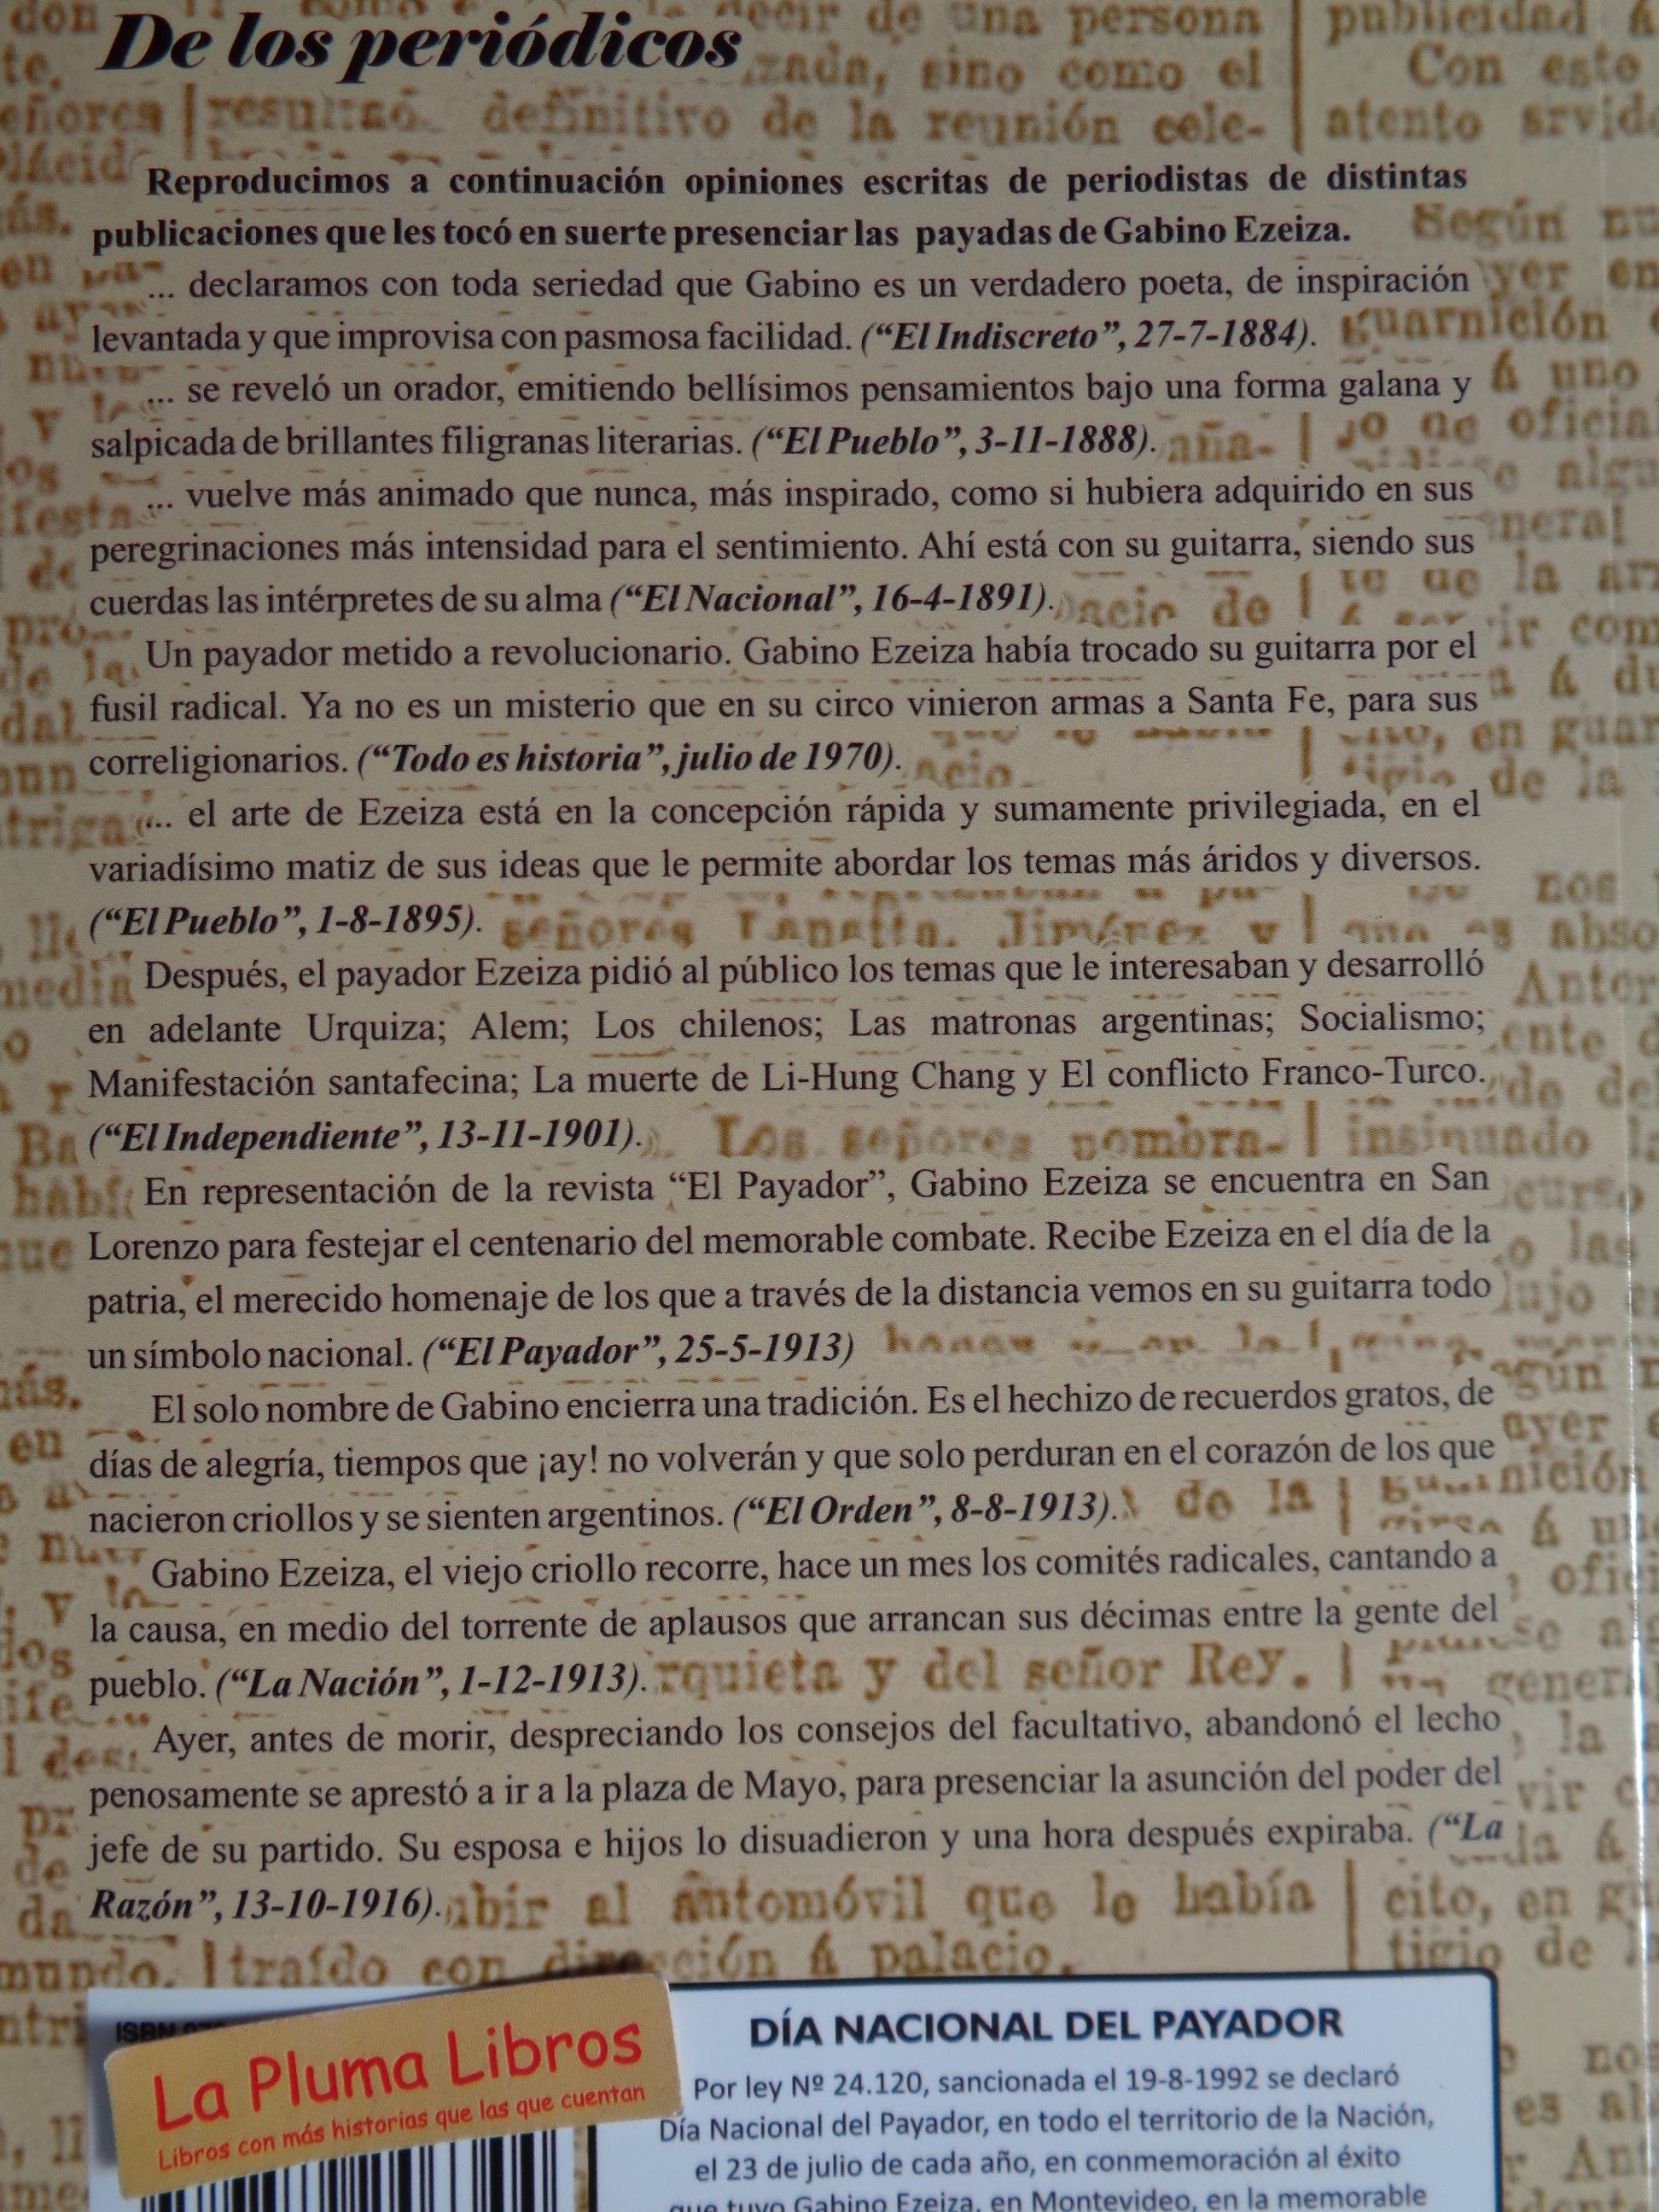 De los periódicos
Reproducimos a continuación opiniones escritas de periodistas de distintas
publicaciones que les tocó en suerte presenciar las payadas de Gabino Ezeiza.
... declaramos con toda seriedad que Gabino es un verdadero poeta, de inspiración
levantada y que improvisa con pasmosa facilidad. (“El Indiscreto”, 27-7-1884).
... se reveló un orador, emitiendo bellísimos pensamientos bajo una forma galana y
salpicada de brillantes filigranas literarias. (“El Pueblo”, 3-11-1888).
... vuelve más animado que nunca, más inspirado, como si hubiera adquirido en sus
peregrinaciones más intensidad para el sentimiento. Ahí está con su guitarra, siendo sus
cuerdas las intérpretes de su alma (“El Nacional”, 16-4-1891).
Un payador metido a revolucionario. Gabino Ezeiza había trocado su guitarra por el
fusil radical. Ya no es un misterio que en su circo vinieron armas a Santa Fe, para sus
correligionarios. (“Todo es historia”, julio de 1970).
... el arte de Ezeiza está en la concepción rápida y sumamente privilegiada, en el
variadísimo matiz de sus ideas que le permite abordar los temas más áridos y diversos.
(“El Pueblo”, 1-8-1895).
Después, el payador Ezeiza pidió al público los temas que le interesaban y desarrolló
en adelante Urquiza; Alem; Los chilenos; Las matronas argentinas; Socialismo;
Manifestación santafecina; La muerte de Li-Hung Chang y El conflicto Franco-Turco.
(“El Independiente”, 13-11-1901).
En representación de la revista “El Payador”, Gabino Ezeiza se encuentra en San
Lorenzo para festejar el centenario del memorable combate. Recibe Ezeiza en el día de la
patria, el merecido homenaje de los que a través de la distancia vemos en su guitarra todo
un símbolo nacional. (“El Payador”, 25-5-1913)
El solo nombre de Gabino encierra una tradición. Es el hechizo de recuerdos gratos, de
días de alegría, tiempos que ¡ay! no volverán y que solo perduran en el corazón de los que
nacieron criollos y se sienten argentinos. (“El Orden”, 8-8-1913).
Gabino Ezeiza, el viejo criollo recorre, hace un mes los comités radicales, cantando a
la causa, en medio del torrente de aplausos que arrancan sus décimas entre la gente del
pueblo. (“La Nación”, 1-12-1913).
Ayer, antes de morir, despreciando los consejos del facultativo, abandonó el lecho
penosamente se aprestó a ir a la plaza de Mayo, para presenciar la asunción del poder del
jefe de su partido. Su esposa e hijos lo disuadieron y una hora después expiraba. (“La
Razón”, 13-10-1916).
ISBN
La Pluma Libros
Libros con más historias que las que cuentan
DÍA NACIONAL DEL PAYADOR
Por ley Nº 24.120, sancionada el 19-8-1992 se declaró
Día Nacional del Payador, en todo el territorio de la Nación,
el 23 de julio de cada año, en conmemoración al éxito
que tuvo Gabino Ezeiza, en Montevideo, en la memorable